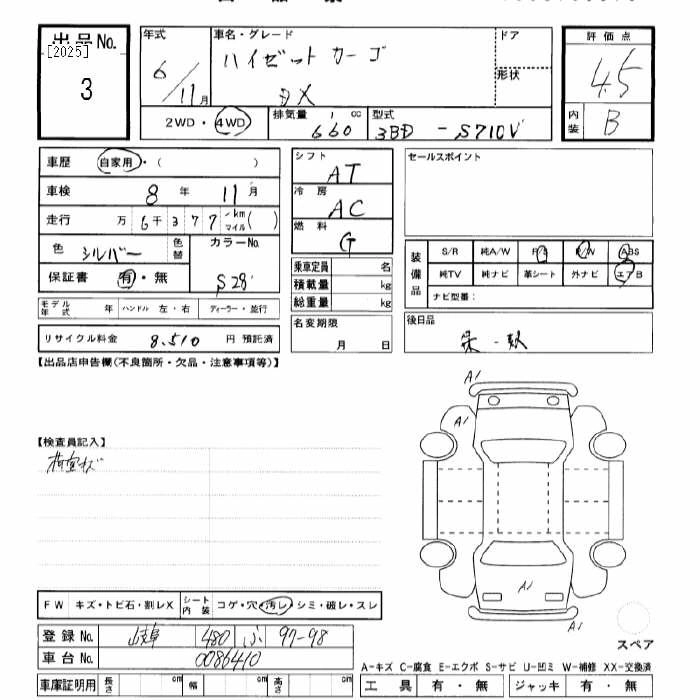 出品No.
[2025]
3
年式
6/11月
車名・グレード
ハイゼットカーゴ
DX
ドア
形状
2WD・4WD
排気量 cc
660
型式
3BD - S710V
評価点
4.5
内装
B
車歴 自家用・( )
車検 8年 11月
走行 万 6千377 km マイル( )
色 シルバー 色替
カラーNo.
S28
保証書 有・無
モデル年式 年 ハンドル 左・右 ディーラー・並行
リサイクル料金 8,510 円 預託済
シフト
AT
冷房
AC
燃料
G
乗車定員 名
積載量 kg
総重量 kg
名変期限
月 日
セールスポイント
装備品
S/R 純A/W P/S P/W ABS
純TV 純ナビ 革シート 外ナビ エアB
ナビ型番:
後日品
【出品店申告欄(不良箇所・欠品・注意事項等)】
【検査員記入】
荷室キズ
A1
A1
A1
A1
スペア
FW キズ・トビ石・割レX
シート内装 コゲ・穴・汚レ・シミ・破レ・スレ
登録No. 岐阜 480 ふ 97-98
車台No. 0086410
車庫証明用 長さ cm 幅 cm 高さ cm
A-キズ C-腐食 E-エクボ S-サビ U-凹ミ W-補修 XX-交換済
工具 有・無 ジャッキ 有・無